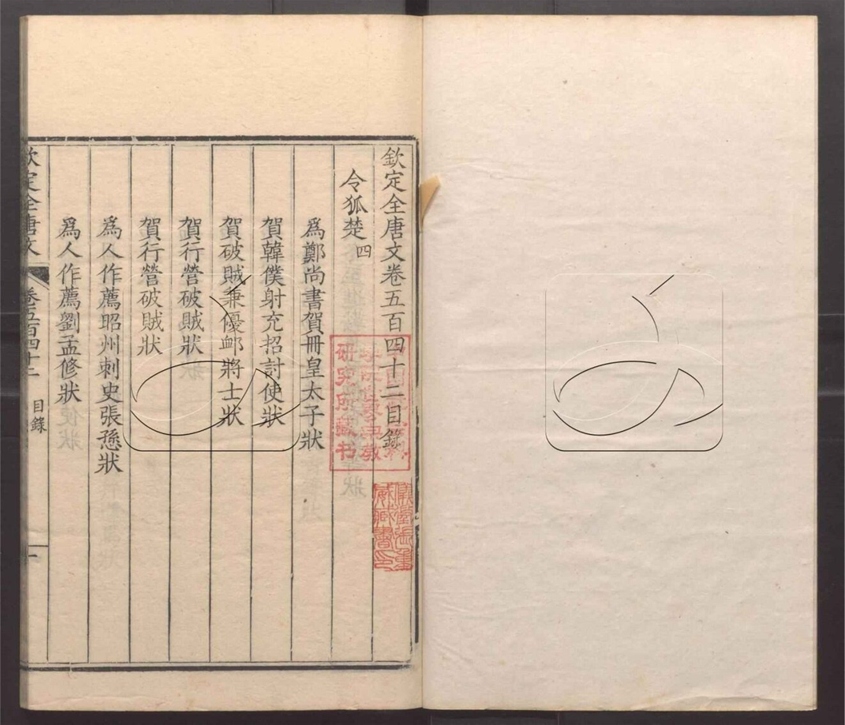 欽定全唐文卷五百四十二目錄
令狐楚四
為鄭尚書賀冊皇太子狀
賀韓僕射充招討使狀
賀破賊兼優卹將士狀
賀行營破賊狀
賀行營破賊狀
為人作薦昭州刺史張愻狀
為人作薦劉孟修狀
欽定全唐文
卷五百四十二
目錄
一
研究所藏書